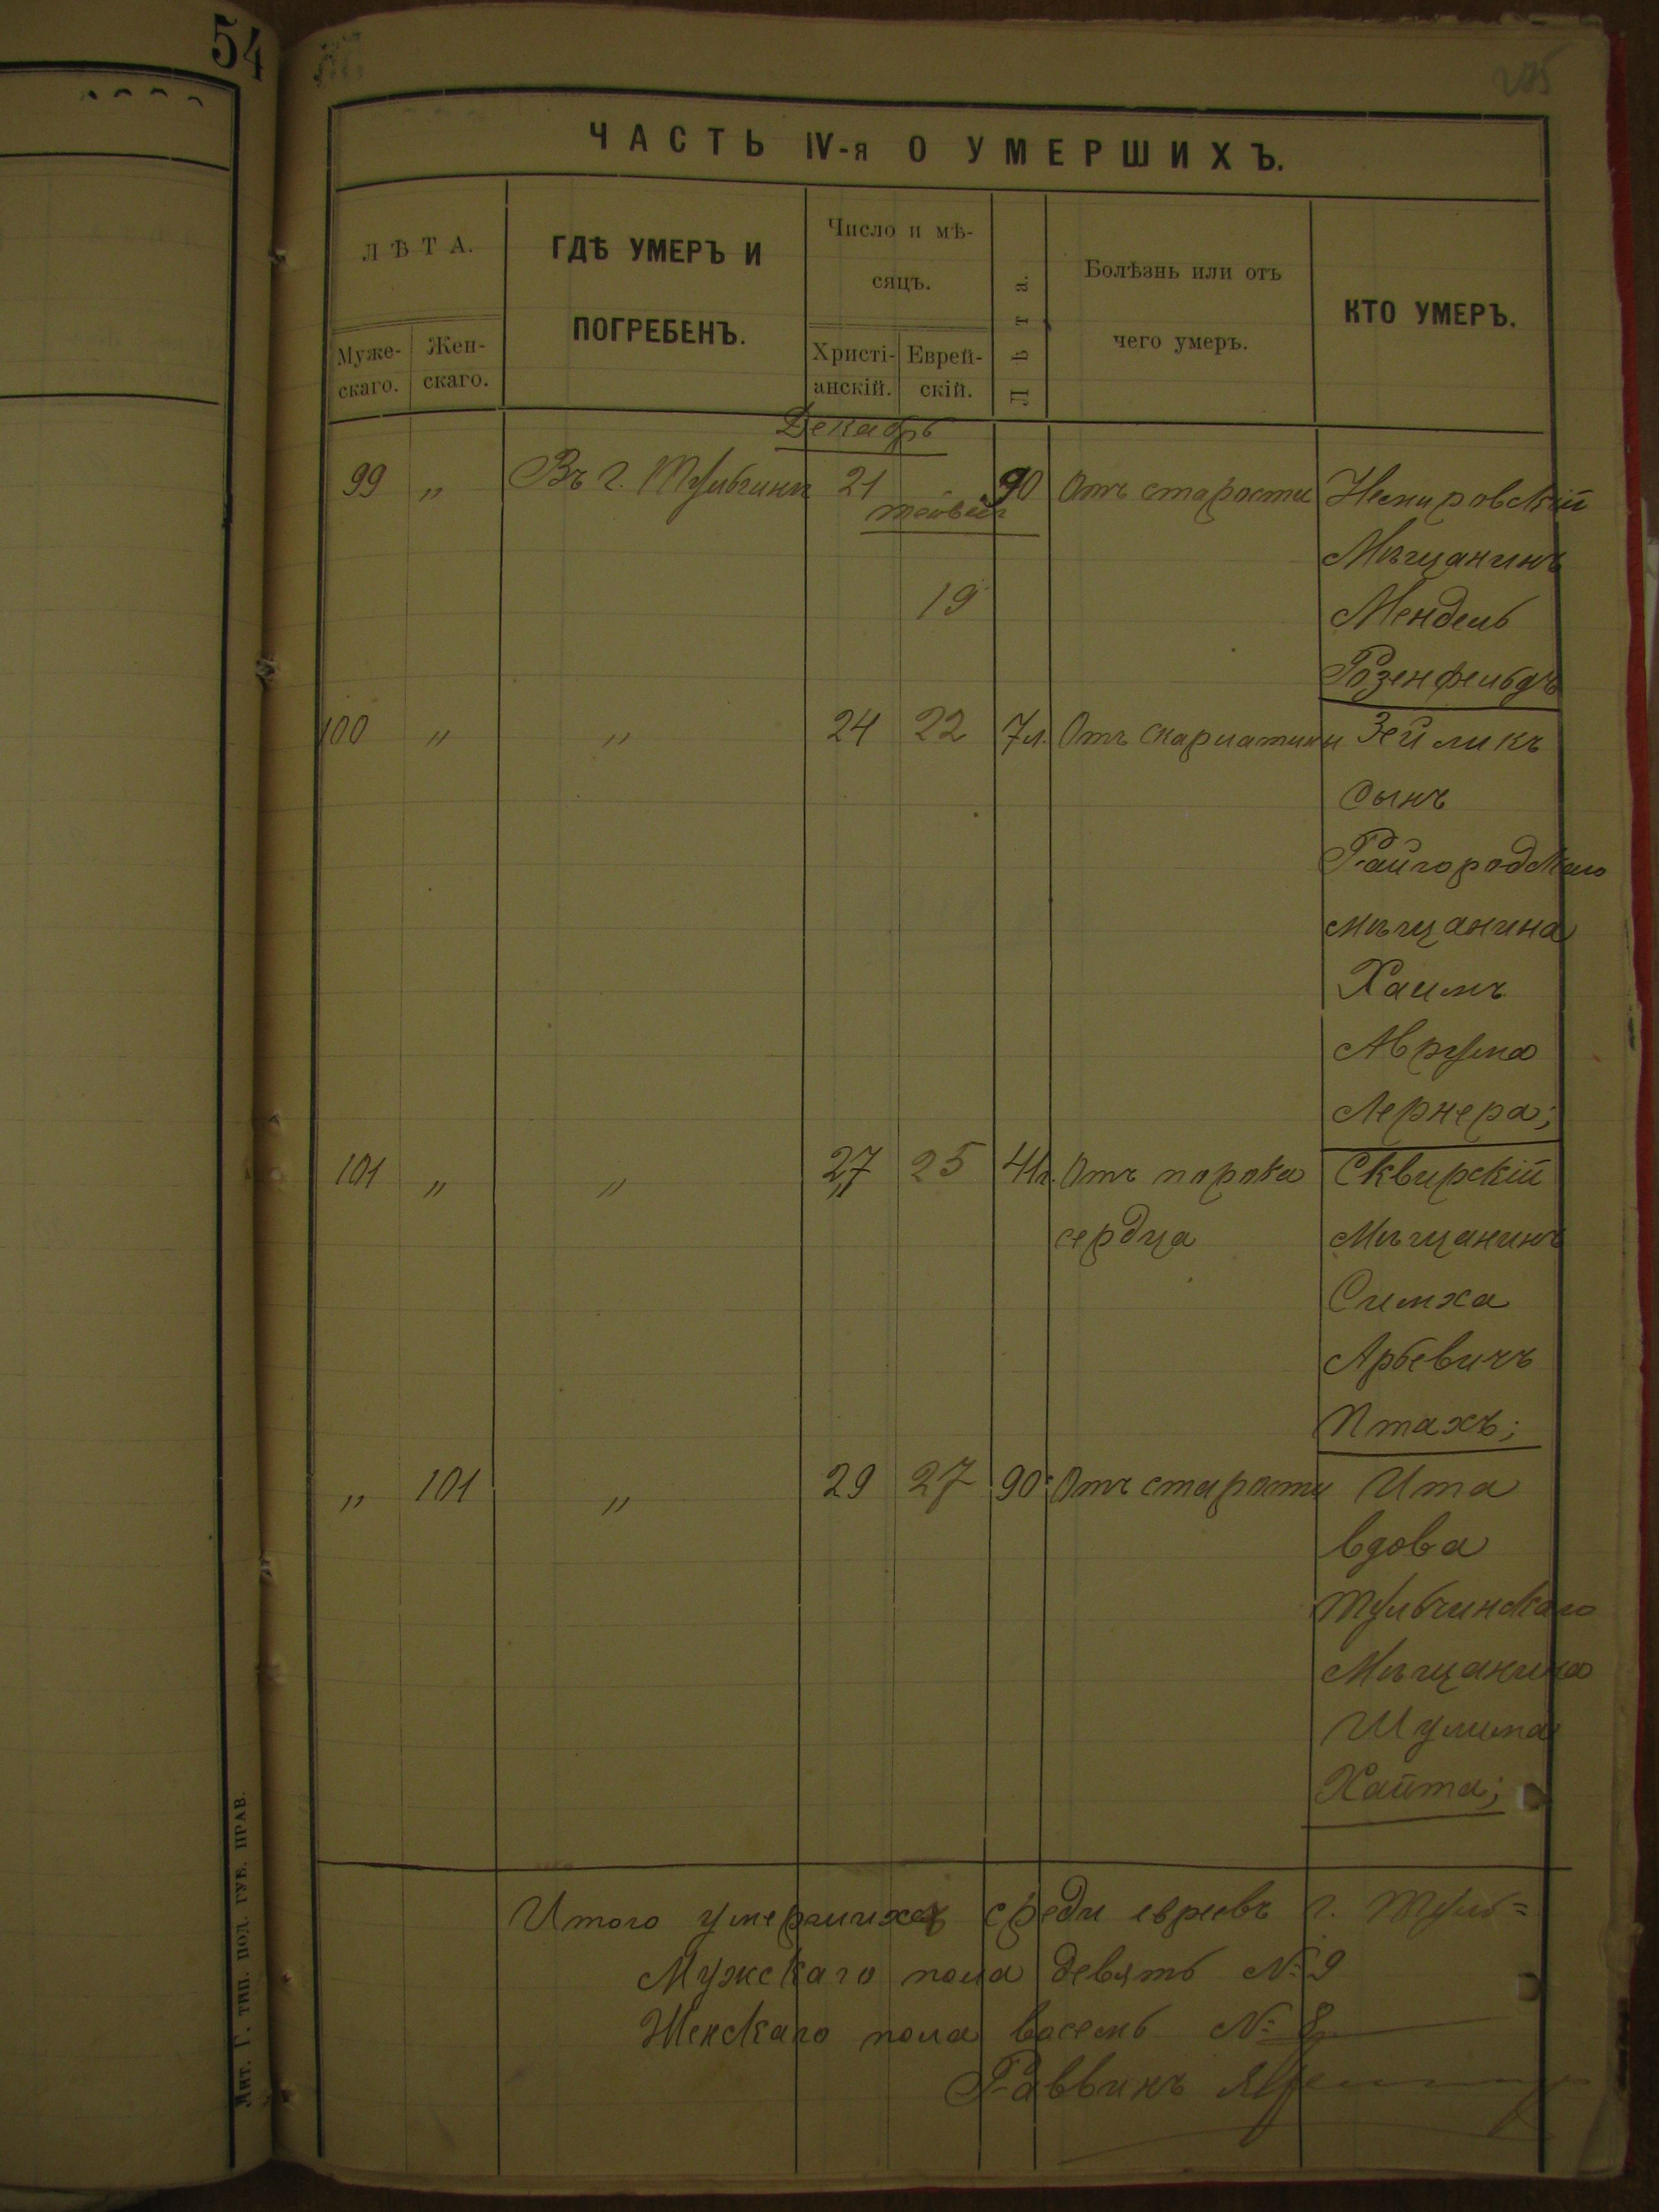 54
205
ЧАСТЬ IV-я О УМЕРШИХЪ.
ЛѢТА.
Муже-
скаго.
Жен-
скаго.
ГДѢ УМЕРЪ И
ПОГРЕБЕНЪ.
Число и мѣ-
сяцъ.
Христі-
анскій.
Еврей-
скій.
Лѣта.
Болѣзнь или отъ
чего умеръ.
КТО УМЕРЪ.
Декабрь
99 " Въ г. Тульчинѣ 21 90 Отъ старости Немировскій
тейвеи
Мѣщанинъ
19 Мендель
Розенфельдъ
100 " " 24 22 7л. Отъ скарлатины Зейликъ
сынъ
Райгородскаго
мѣщанина
Хаимъ
Аврума
Лернера;
101 " " 27 25 41л. Отъ порока Сквирскій
сердца Мѣщанинъ
Симха
Арьевичъ
Птахъ;
" 101 " 29 27 90 Отъ старости Ита
вдова
Тульчинскаго
Мѣщанина
Шулима
Хайта;
Итого умершихъ среди евреевъ г. Туль=
Мужскаго пола девять № 9
Женскаго пола восемь № 8
Раввинъ
Лит. Г. тип. под. губ. прав.